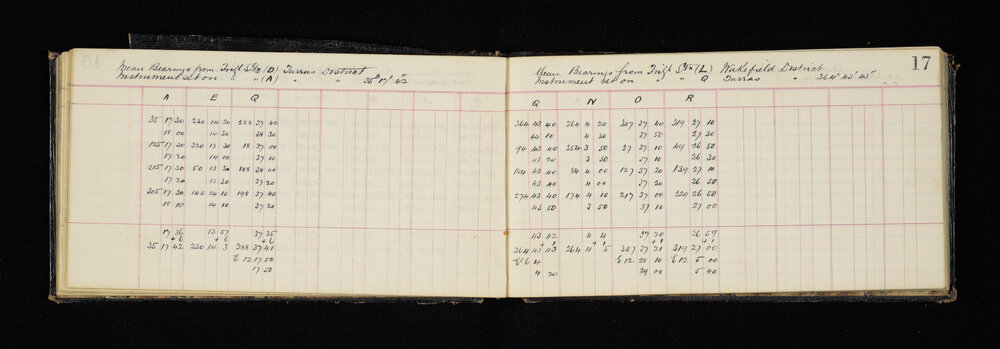 Mean Bearings from Trig'l Stn (D) Tarras District
Instrument set on " " (A) " " 35° 17' 42"
A E Q
35 17 30 230 14 20 288 37 40
18 00 14 30 38 30
125 17 30 320 13 30 18 37 00
17 20 14 00 37 10
215 17 30 50 13 30 108 38 00
17 20 13 30 37 20
305 17 30 140 14 10 198 37 40
18 10 14 10 37 20
17 36 13 57 37 35
+6 +6 +6
35 17 42 230 14 3 288 37 41
12 17 50
17 50
17
Mean Bearings from Trig'l Stn (L) Wakefield District
Instrument set on " " Q Tarras " 364° 43' 43"
Q N O R
364 43 40 264 4 20 307 37 40 319 27 10
44 10 4 30 37 50 27 30
94 43 40 354 3 50 37 37 10 49 26 50
43 20 3 50 37 10 26 30
184 43 40 84 4 00 127 37 20 139 27 10
43 40 4 00 37 20 26 50
274 43 40 174 4 10 217 37 00 229 26 50
43 50 3 50 37 10 27 00
43 42 4 4 37 20 26 59
+1 +1 +1 +1
364 43 43 264 4 5 307 37 21 319 27 00
6 4 12 28 10 12 5 00
4 20 29 00 5 40